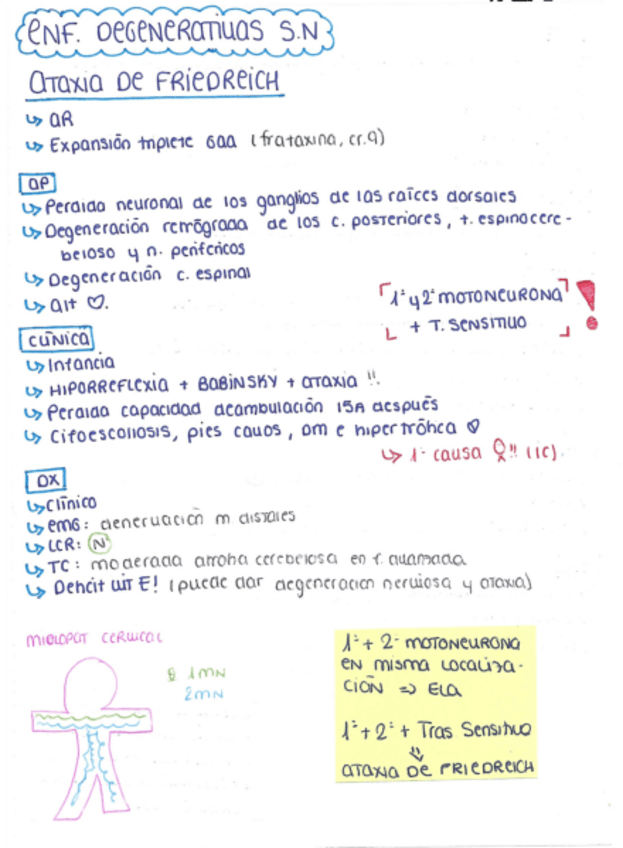 ENF. DEGENERATIVAS S.N
ATAXIA DE FRIEDREICH
↳ AR
↳ Expansión triplete GAA (frataxina, cr.9)
AP
↳ Perdida neuronal de los ganglios de las raíces dorsales
↳ Degeneración retrógrada de los c. posteriores, t. espinocere-
beloso y n. periféricos
↳ Degeneración c. espinal
↳ alt ♡.
1ª y 2ª MOTONEURONA
+ T. SENSITIVO
!
CLÍNICA
↳ Infancia
↳ HIPORREFLEXIA + BABINSKY + ATAXIA !!
↳ Perdida capacidad deambulación 15A después
↳ Cifoescoliosis, pies cavos, DM e hipertrófica ♡
↳ 1ª causa !! (IC).
DX
↳ Clínico
↳ EMG: denervación m. distales
↳ LCR: N
↳ TC: moderada atrofia cerebelosa en f. avanzada
↳ Déficit VIT E! (puede dar degeneración nerviosa y ataxia)
MIELOPAT CERVICAL
1MN
2MN
1ª + 2ª MOTONEURONA
EN misma LOCALIZA-
CIÓN => ELA
1ª + 2ª + Tras Sensitivo
⇓
ATAXIA DE FRIEDREICH